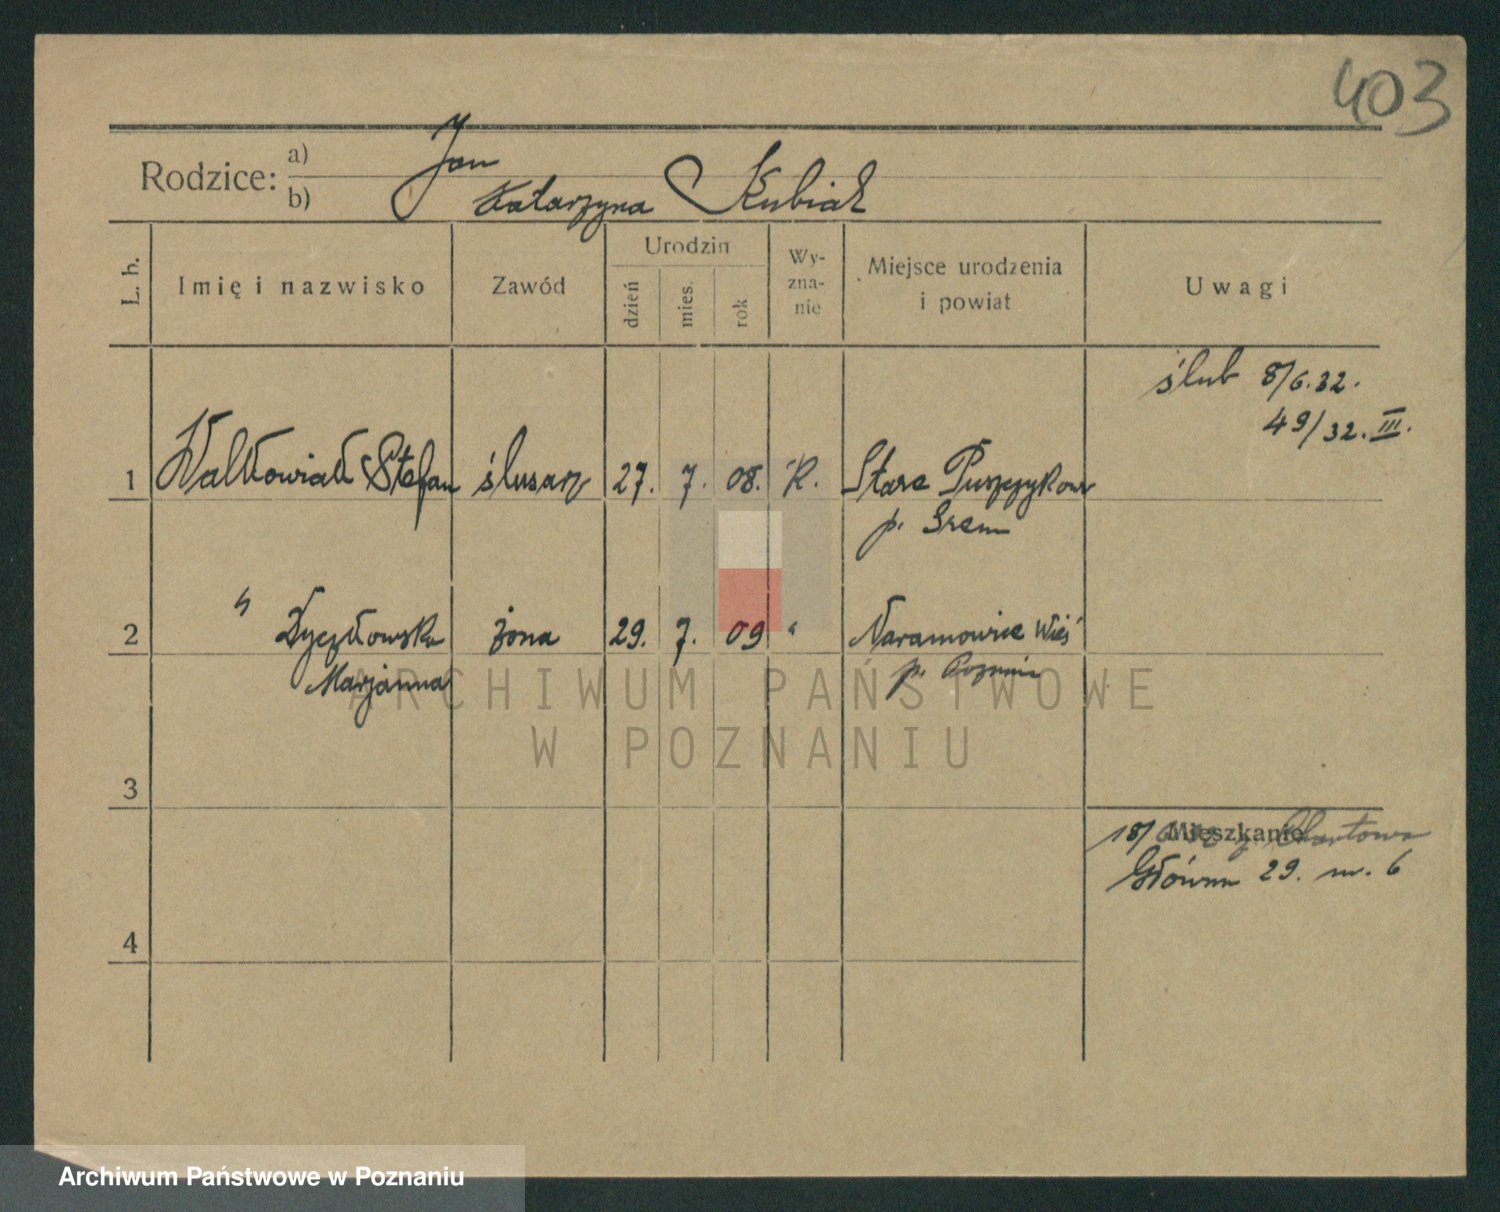 403
Rodzice: a) Jan
b) Katarzyna Kubiak
L. b. Imię i nazwisko Zawód Urodzin dzień mies. rok Wy-zna-nie Miejsce urodzenia i powiat Uwagi
ślub 8/6.32.
49/32. III.
1 Walkowiak Stefan ślusarz 27. 7. 08. R. Stare Puszczykowo
p. Srem
2 " Dyczkowska żona 29. 7. 09 " Naramowice Wieś
Marjanna p. Poznań
ARCHIWUM PAŃSTWOWE
W POZNANIU
3
Mieszkanie
18/ z Chartowa
Główna 29. m. 6
4
Archiwum Państwowe w Poznaniu